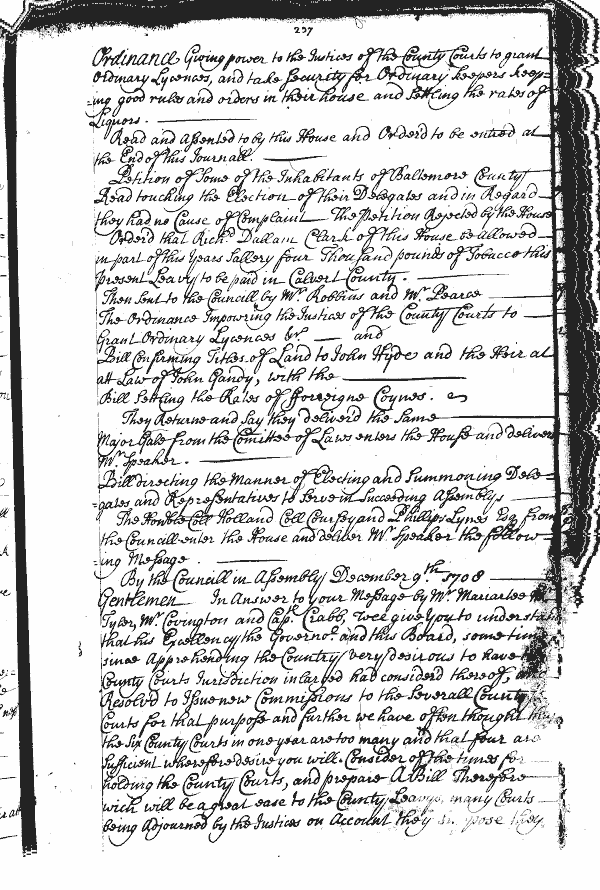 237
Ordinance Giving power to the Justices of the County Courts to grant
Ordinary Lycences, and take Security for Ordinary keepers keep=
=ing good rules and orders in their house and Settling the rates of
Liquors.
Read and Assented to by this House and Orderd to be entred at
the End of this Journall.
Petition of Some of the Inhabitants of Baltemore County
Read touching the Election of their Delegates and in Regard
they had no Cause of Complaint The Petition Rejected by the House
Orderd that Richd. Dallam Clerk of this House be allowed
in part of this Years Sallery four Thousand pounds of Tobacco this
present Leavy to be paid in Calvert County.
Then Sent to the Councill by Mr. Robbins and Mr. Pearce
The Ordinance Impowring the Justices of the County Courts to
Grant Ordinary Lycences &c and
Bill Confirming Titles of Land to John Hyde and the Heir at
att Law of John Gandy, with the
Bill Settling the Rates of fforreigne Coynes.
They Returne and Say they deliverd the Same
Major Gale from the Comittee of Laws enters the House and delivers
Mr. Speaker.
Bill directing the Manner of Electing and Summoning Dele=
=gates and Representatives to serve in Succeeding Assemblys
The Honble Coll Holland Coll Coursey and Phillip Lynes Esqr from
the Councill enter the House and deliver Mr. Speaker the follow=
=ing Message.
By the Councill in Assembly December 9.th 1708
Gentlemen In Answer to your Message by Mr. Mariartee Mr
Tyler, Mr. Covington and Capt. Crabb, wee give you to understand
that his Excellency the Governor. and this Board, some time
since Apprehending the Country very desirous to have the
County Courts Jurisdiction inlarged had considerd thereof, and
Resolvd to Issue new Commissions to the Severall County
Courts for that purpose and further we have often thought that
the Six County Courts in one year are too many and that four are
Sufficient wherefore desire you will Consider of the times for
holding the County Courts, and prepare A Bill Therefore
wich will be a great ease to the County Leavys, many Courts
being Adjourned by the Justices on Account they Su pose they